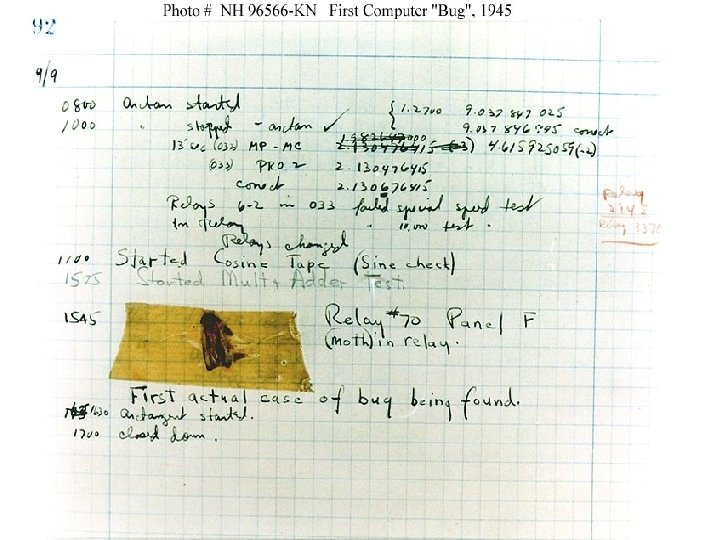 Photo # NH 96566-KN First Computer "Bug", 1945
92
9/9
0800 Antan started { 1.2700 9.037 847 025
1000 " stopped - antan ✓ 9.037 846 995 correct
13"uc (032) MP - MC 2.130476415 (-3) 4.615925059(-2)
(033) PRO 2 2.130476415
correct 2.130676415
Relays 6-2 in 033 failed special speed test
in relay " 10.000 test.
Relay
2145
Relay 3370
Relays changed
1100 Started Cosine Tape (Sine check)
1525 Started Mult + Adder Test.
1545 Relay #70 Panel F
(moth) in relay.
First actual case of bug being found.
1630 Antangent started.
1700 closed down.